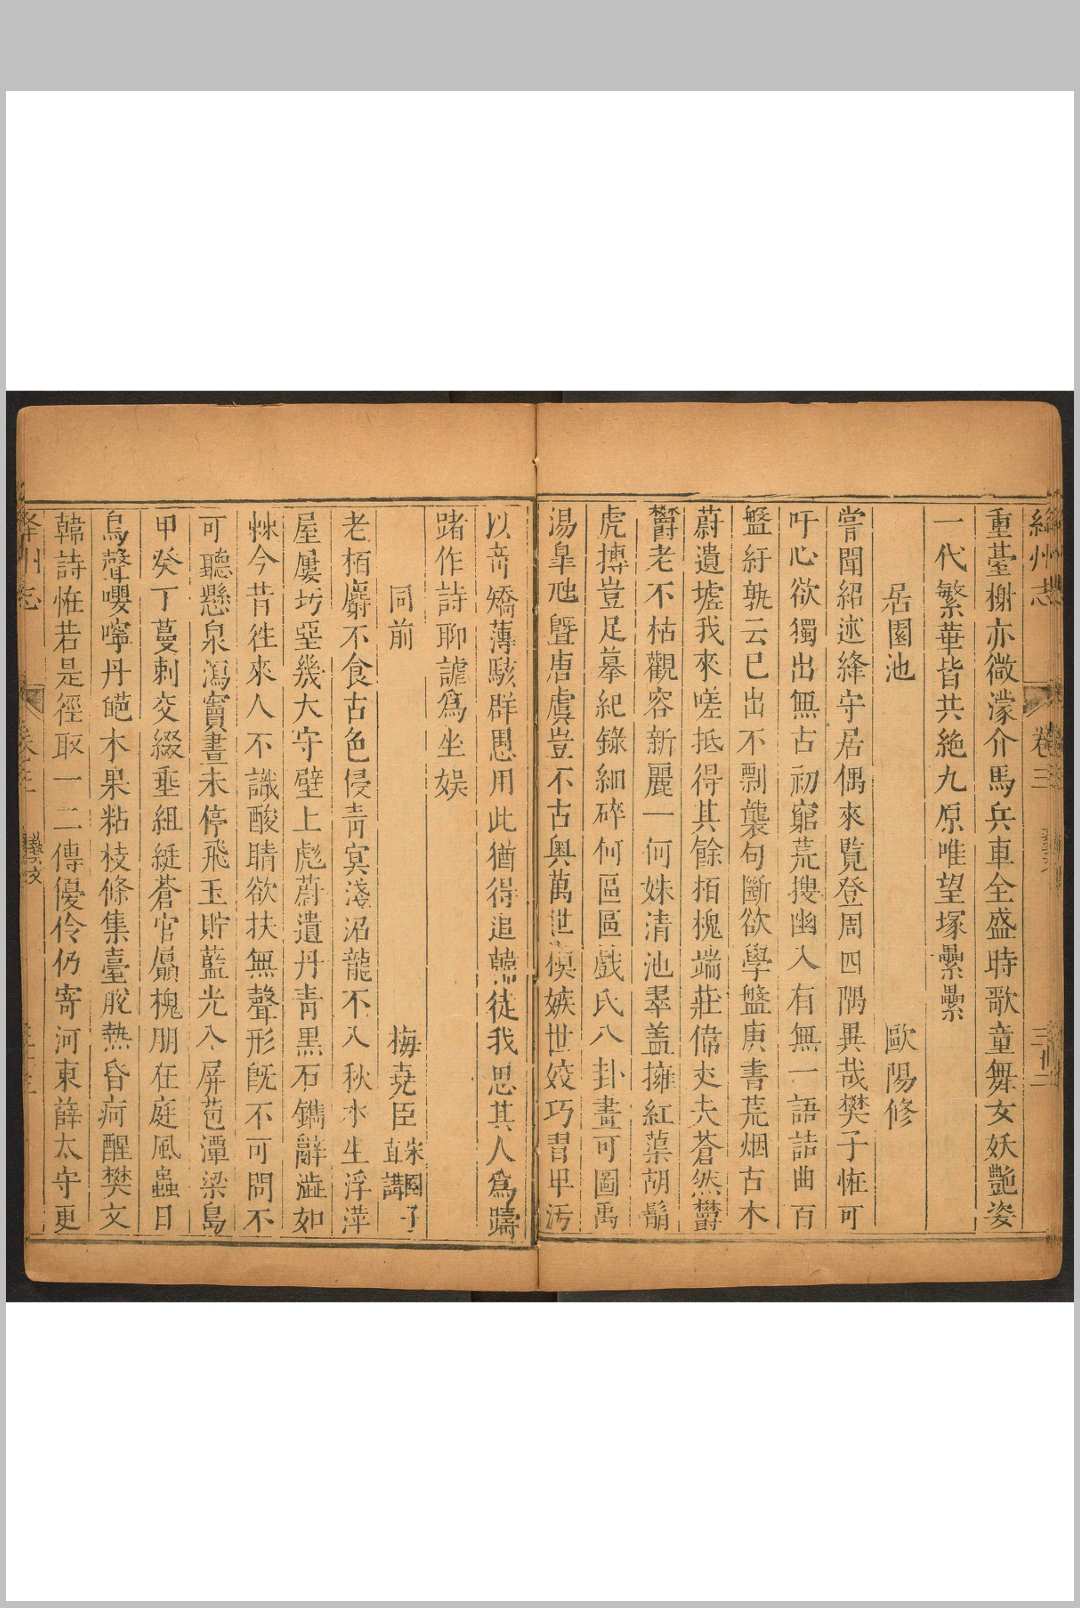 絳州志 卷三 藝文 三卅二
重臺榭亦微濛介馬兵車全盛時歌童舞女妖艷姿
一代繁華皆共絶九原唯望塚纍纍
居園池 歐陽修
嘗聞紹述絳守居偶來覧登周四隅異哉樊子恠可
吁心欲獨出無古初窮荒搜幽入有無一語詰曲百
盤紆孰云已出不剽襲句斷欲學盤庚書荒烟古木
蔚遺墟我來嗟抵得其餘栢槐端莊偉丈夫蒼然欝
欝老不枯觀容新麗一何姝清池翠蓋擁紅蕖胡鬅
虎搏豈足摹紀錄細碎何區區戲氏八卦畫可圖禹
湯皐虺曁唐虞豈不古奥萬世模嫉世姣巧習卑汚
以竒矯薄駭群愚用此猶得追韓徒我思其人爲躊
躇作詩聊謔爲坐娯
同前 梅堯臣 宋國子直講
老栢麝不食古色侵靑㝠淺沼龍不入秋水生浮萍
屋廔圬堊幾大守壁上彪蔚遺丹靑黒石鐫辭澁如
棘今昔徃來人不識酸睛欲扶無聲形旣不可問不
可聽懸泉瀉竇晝未停飛玉貯藍光入屏苞潭梁島
甲癸丁蔓刺交綴垂組綎蒼官屭槐朋在庭風蟲日
鳥聲嚶嚀丹葩木果粘枝條集臺脫熱昏痾醒樊文
韓詩恠若是徑取一二傳優伶仍寄河東薛太守更
絳州志 卷三 藝文